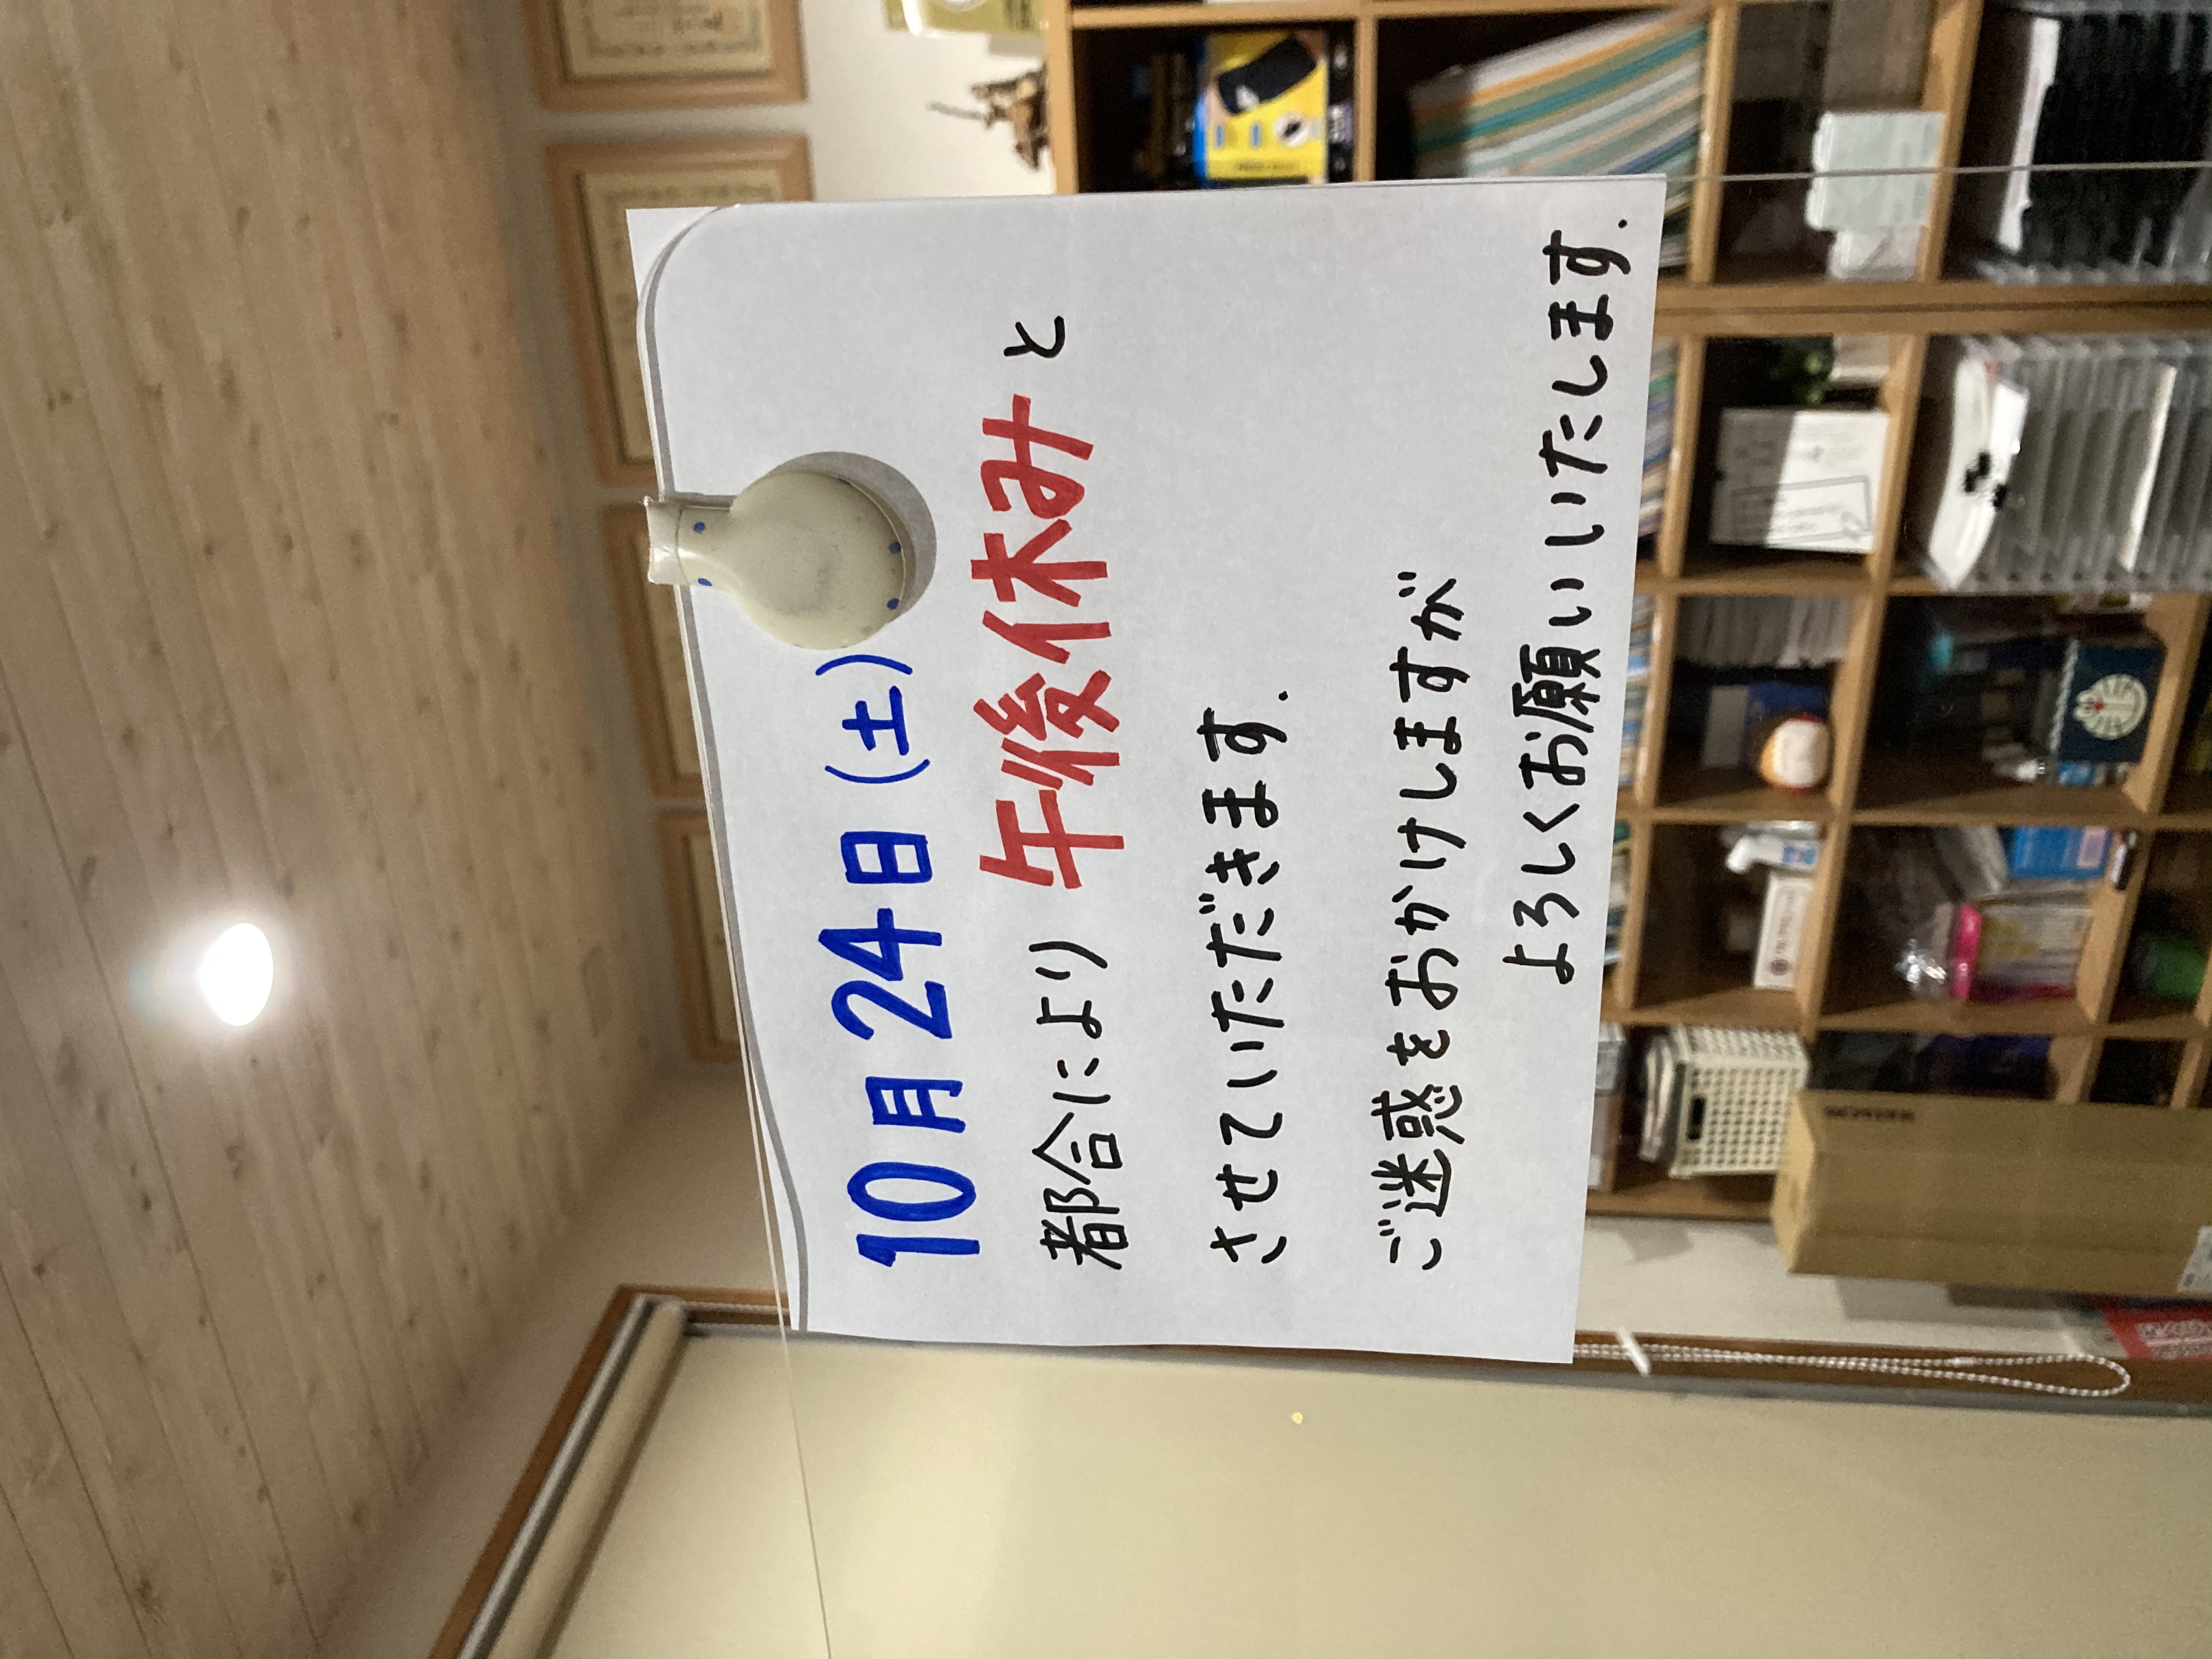 10月24日(土)
都合により 午後休みと
させていただきます.
ご迷惑をおかけしますが
よろしくお願いいたします.